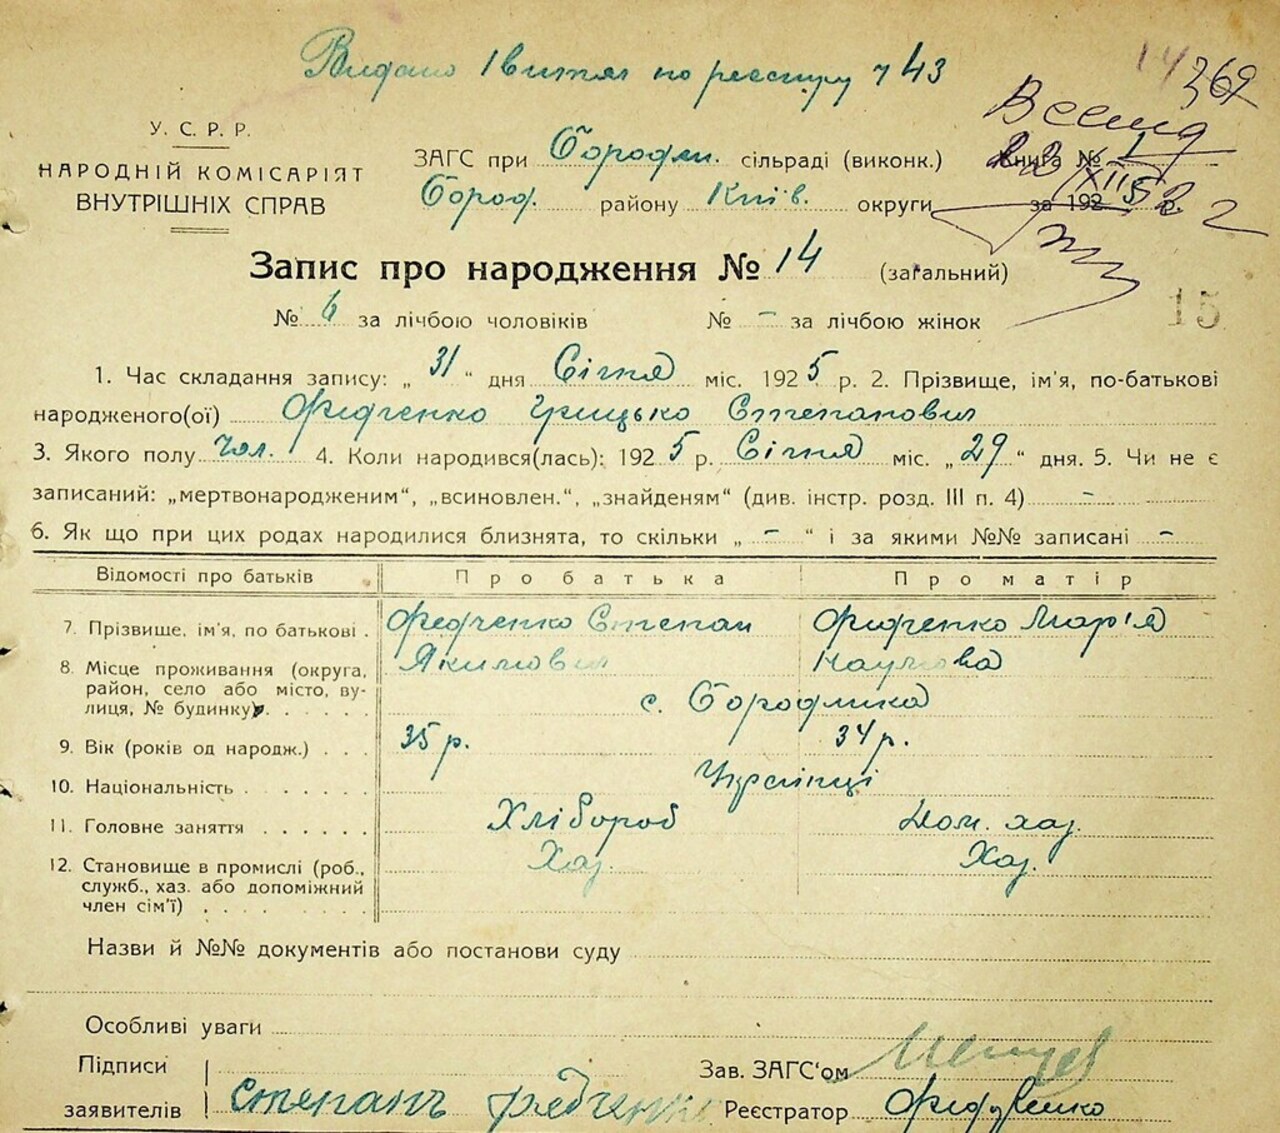 Видано 1 витяг по реєстру ч 43
14 369
У. С. Р. Р.
НАРОДНІЙ КОМІСАРІЯТ
ВНУТРІШНІХ СПРАВ
ЗАГС при Бородян. сільраді (виконк.) Книга № 1
Бород. району Київ. округи за 1925 р.
22 XII 52
Запис про народження № 14 (загальний)
№ 6 за лічбою чоловіків № - за лічбою жінок
15
1. Час складання запису: „31“ дня Січня міс. 1925 р. 2. Прізвище, ім'я, по-батькові
народженого(ої) Федченко Грицько Степанович
3. Якого полу чол. 4. Коли народився(лась): 1925 р. Січня міс. „29“ дня. 5. Чи не є
записаний: „мертвонародженим“, „всиновлен.“, „знайденям“ (див. інстр. розд. III п. 4) -
6. Як що при цих родах народилися близнята, то скільки „ - “ і за якими №№ записані -
Відомості про батьків Про батька Про матір
7. Прізвище, ім'я, по батькові . Федченко Степан Федченко Мар'я
Якимович Наумова
8. Місце проживання (округа,
район, село або місто, ву-
лиця, № будинку). с. Бородянка
9. Вік (років од народж.) . . . 35 р. 34 р.
10. Національність Українці
11. Головне заняття Хлібороб Дом. хаз.
12. Становище в промислі (роб., Хаз. Хаз.
служб., хаз. або допоміжний
член сім'ї)
Назви й №№ документів або постанови суду
Особливі уваги
Підписи
заявителів Степанъ Федченко
Зав. ЗАГС'ом
Реєстратор Федченко